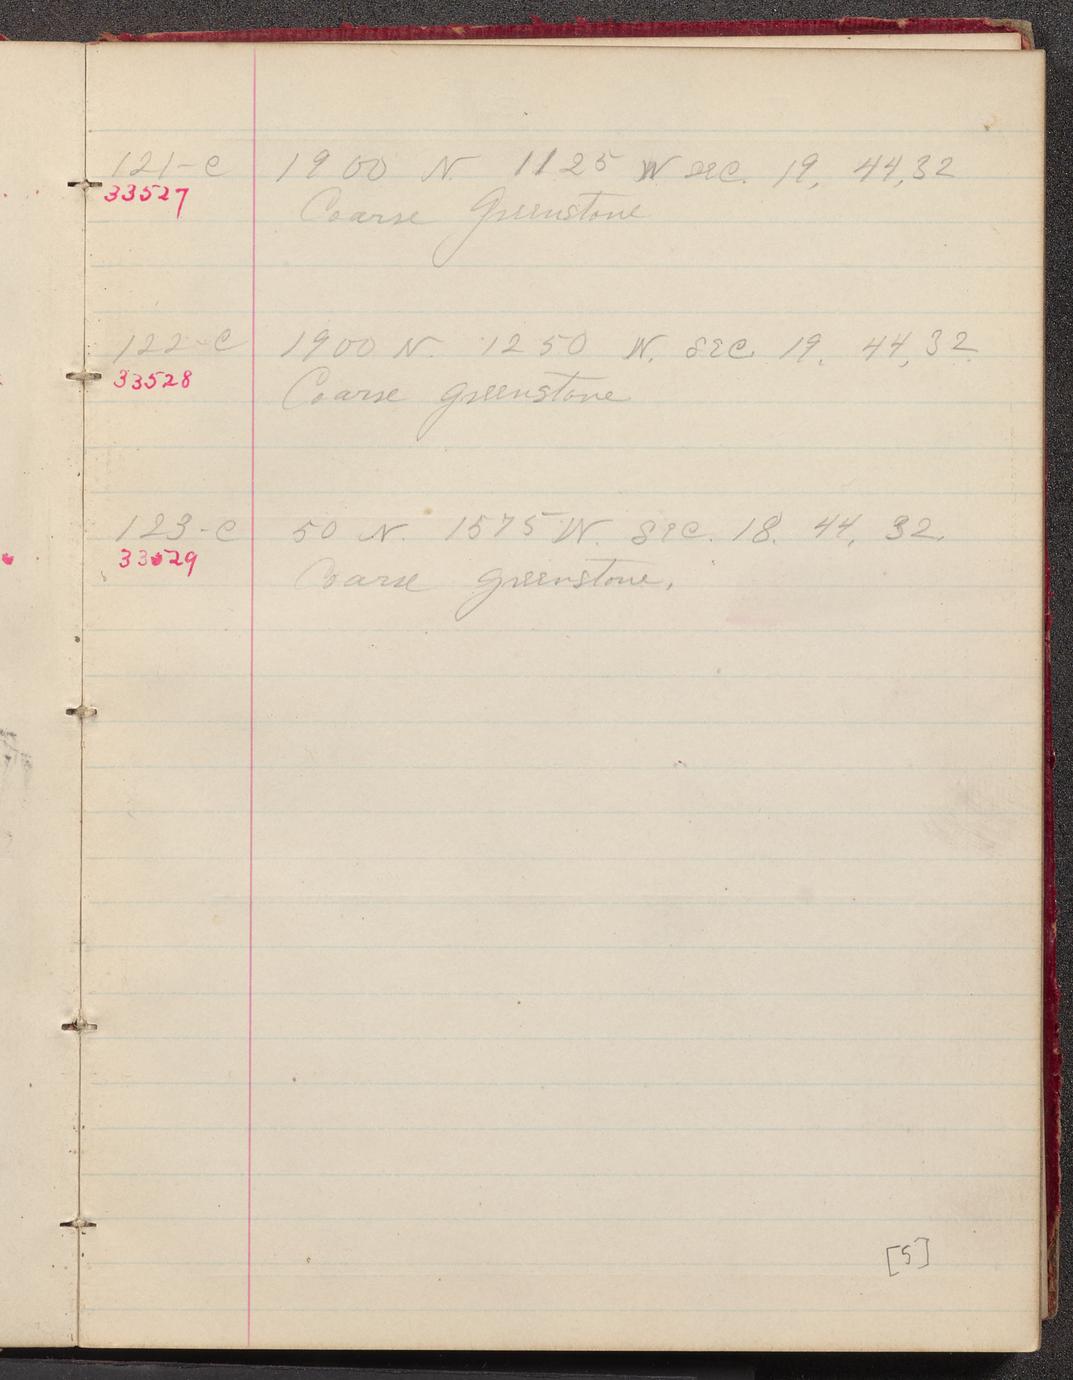 121-C 1900 N. 1125 W SEC. 19, 44,32
33527
Coarse Greenstone
122-C 1900 N. 1250 W. SEC. 19. 44, 32.
33528
Coarse greenstone
123-C 50 N. 1575 W. SEC. 18. 44, 32.
33529
Coarse greenstone.
[5]